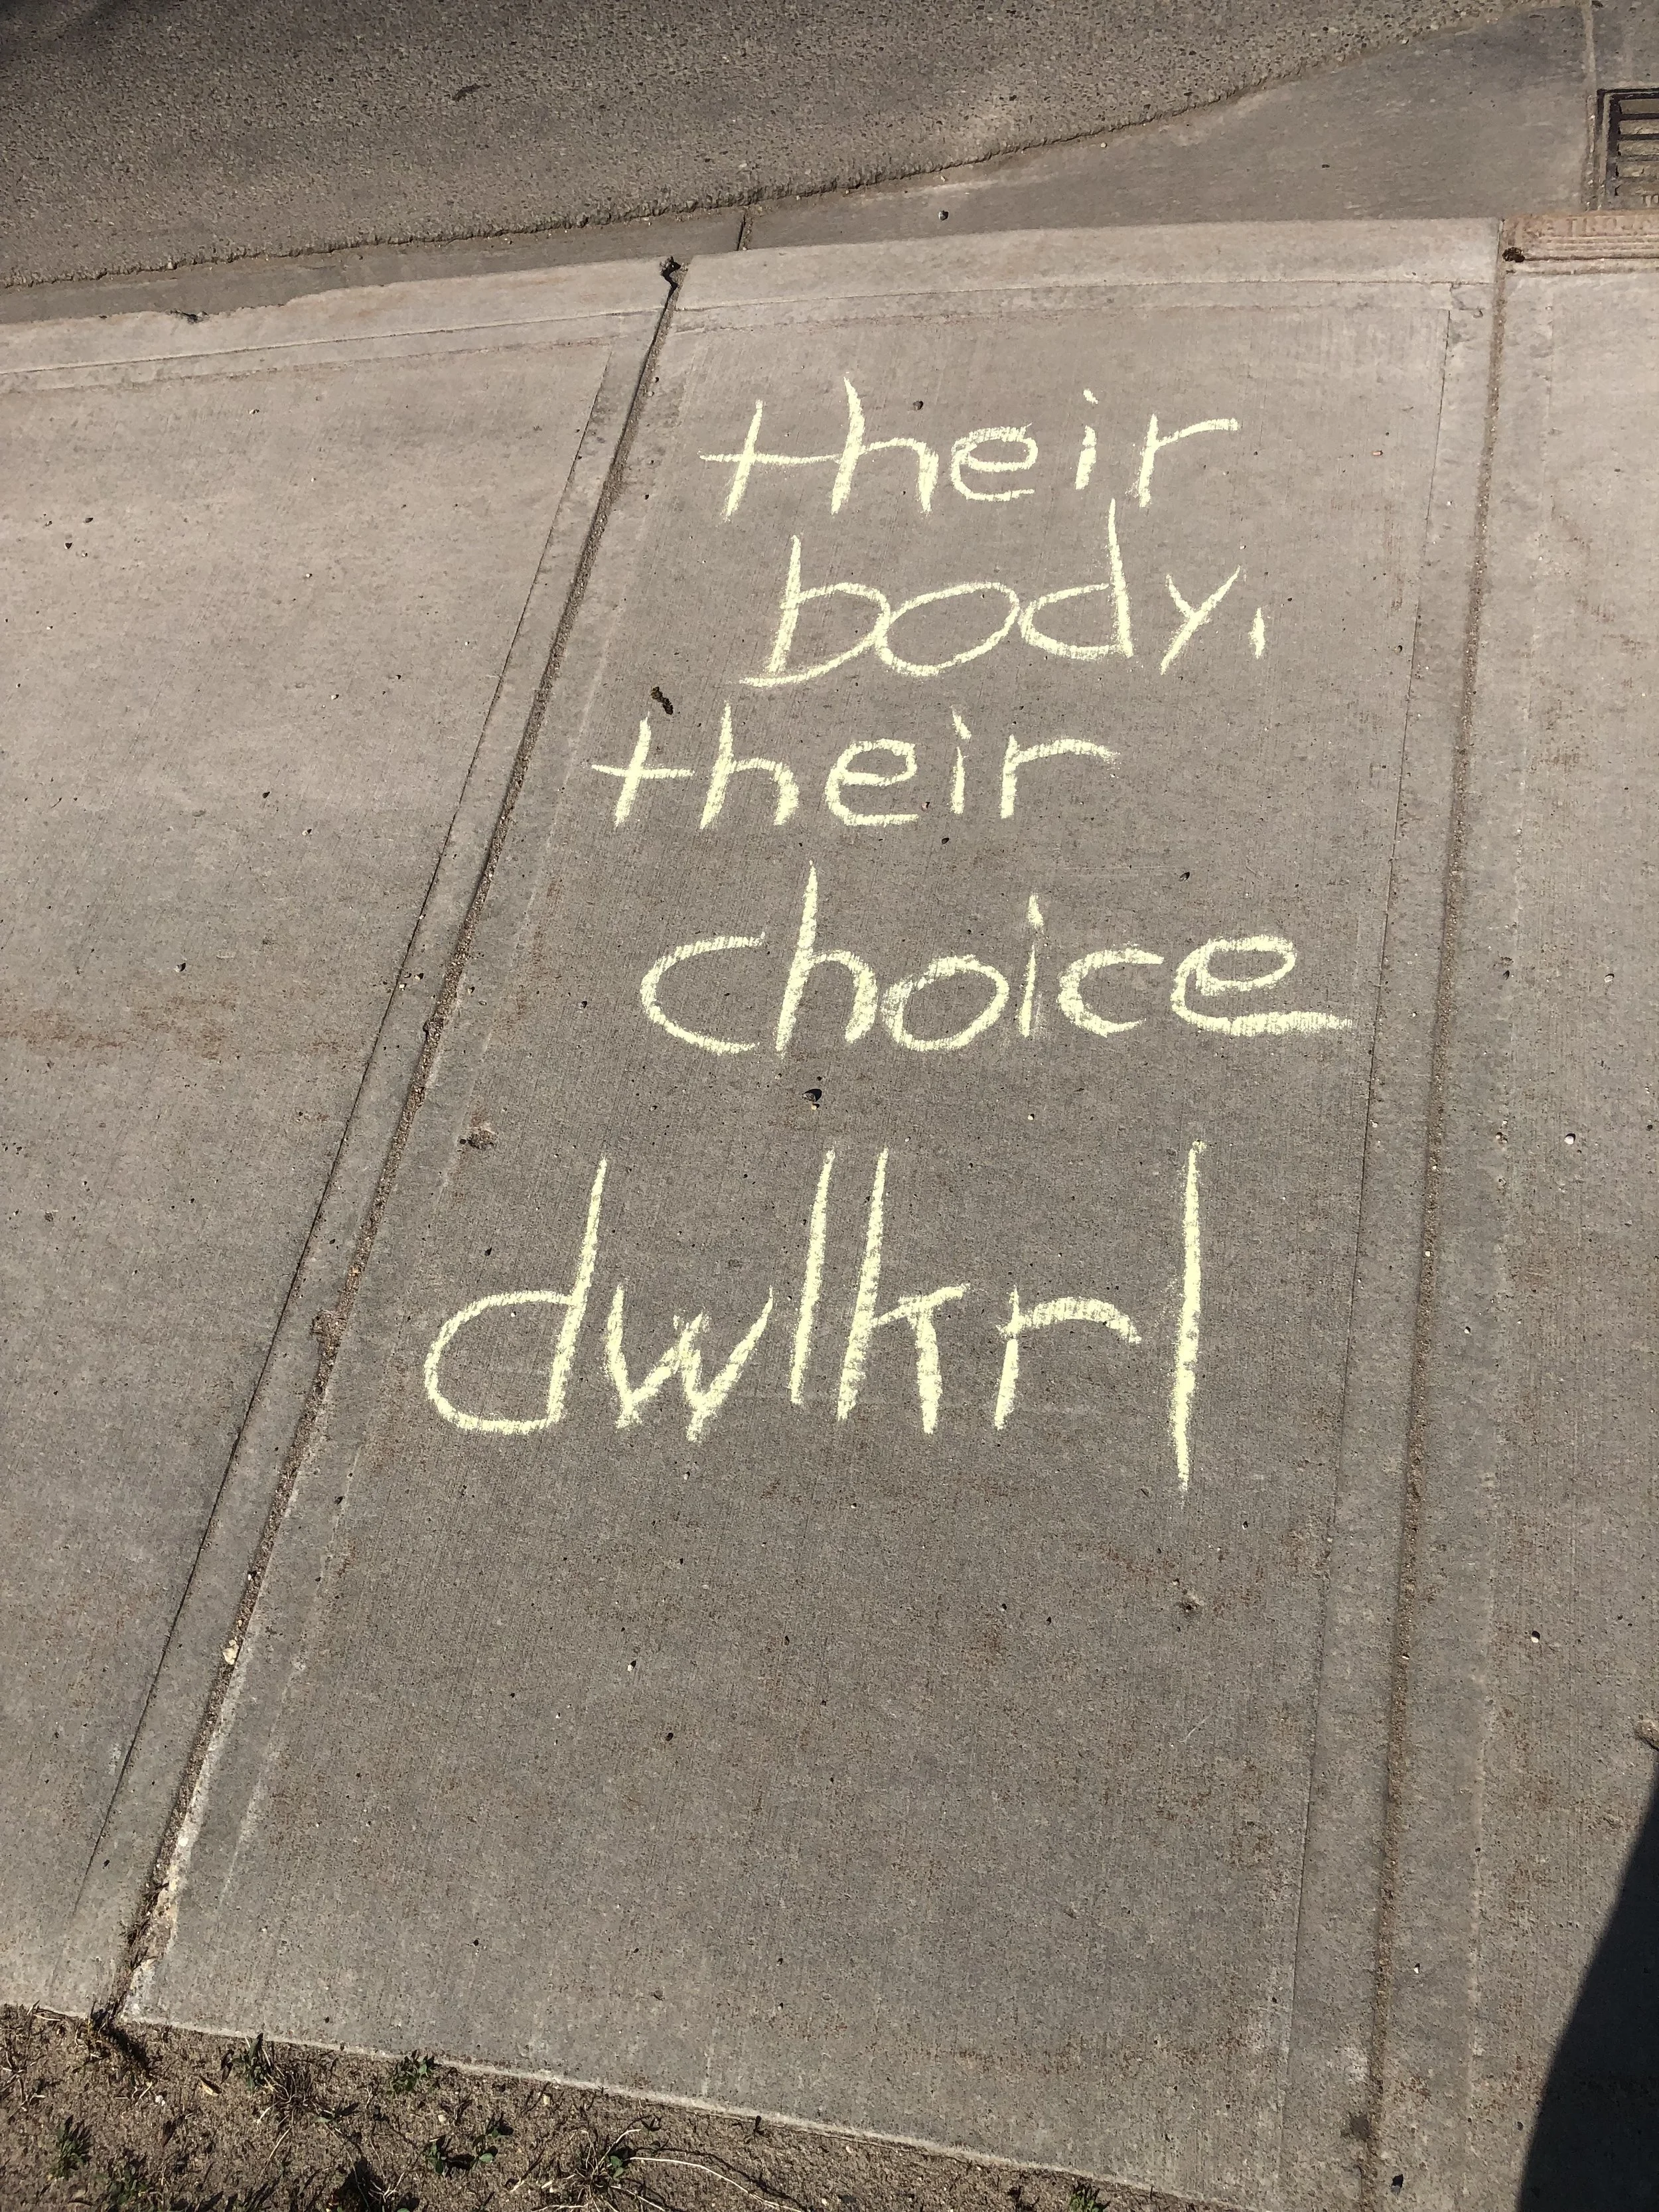 their
body,
their
choice
dwlkrl